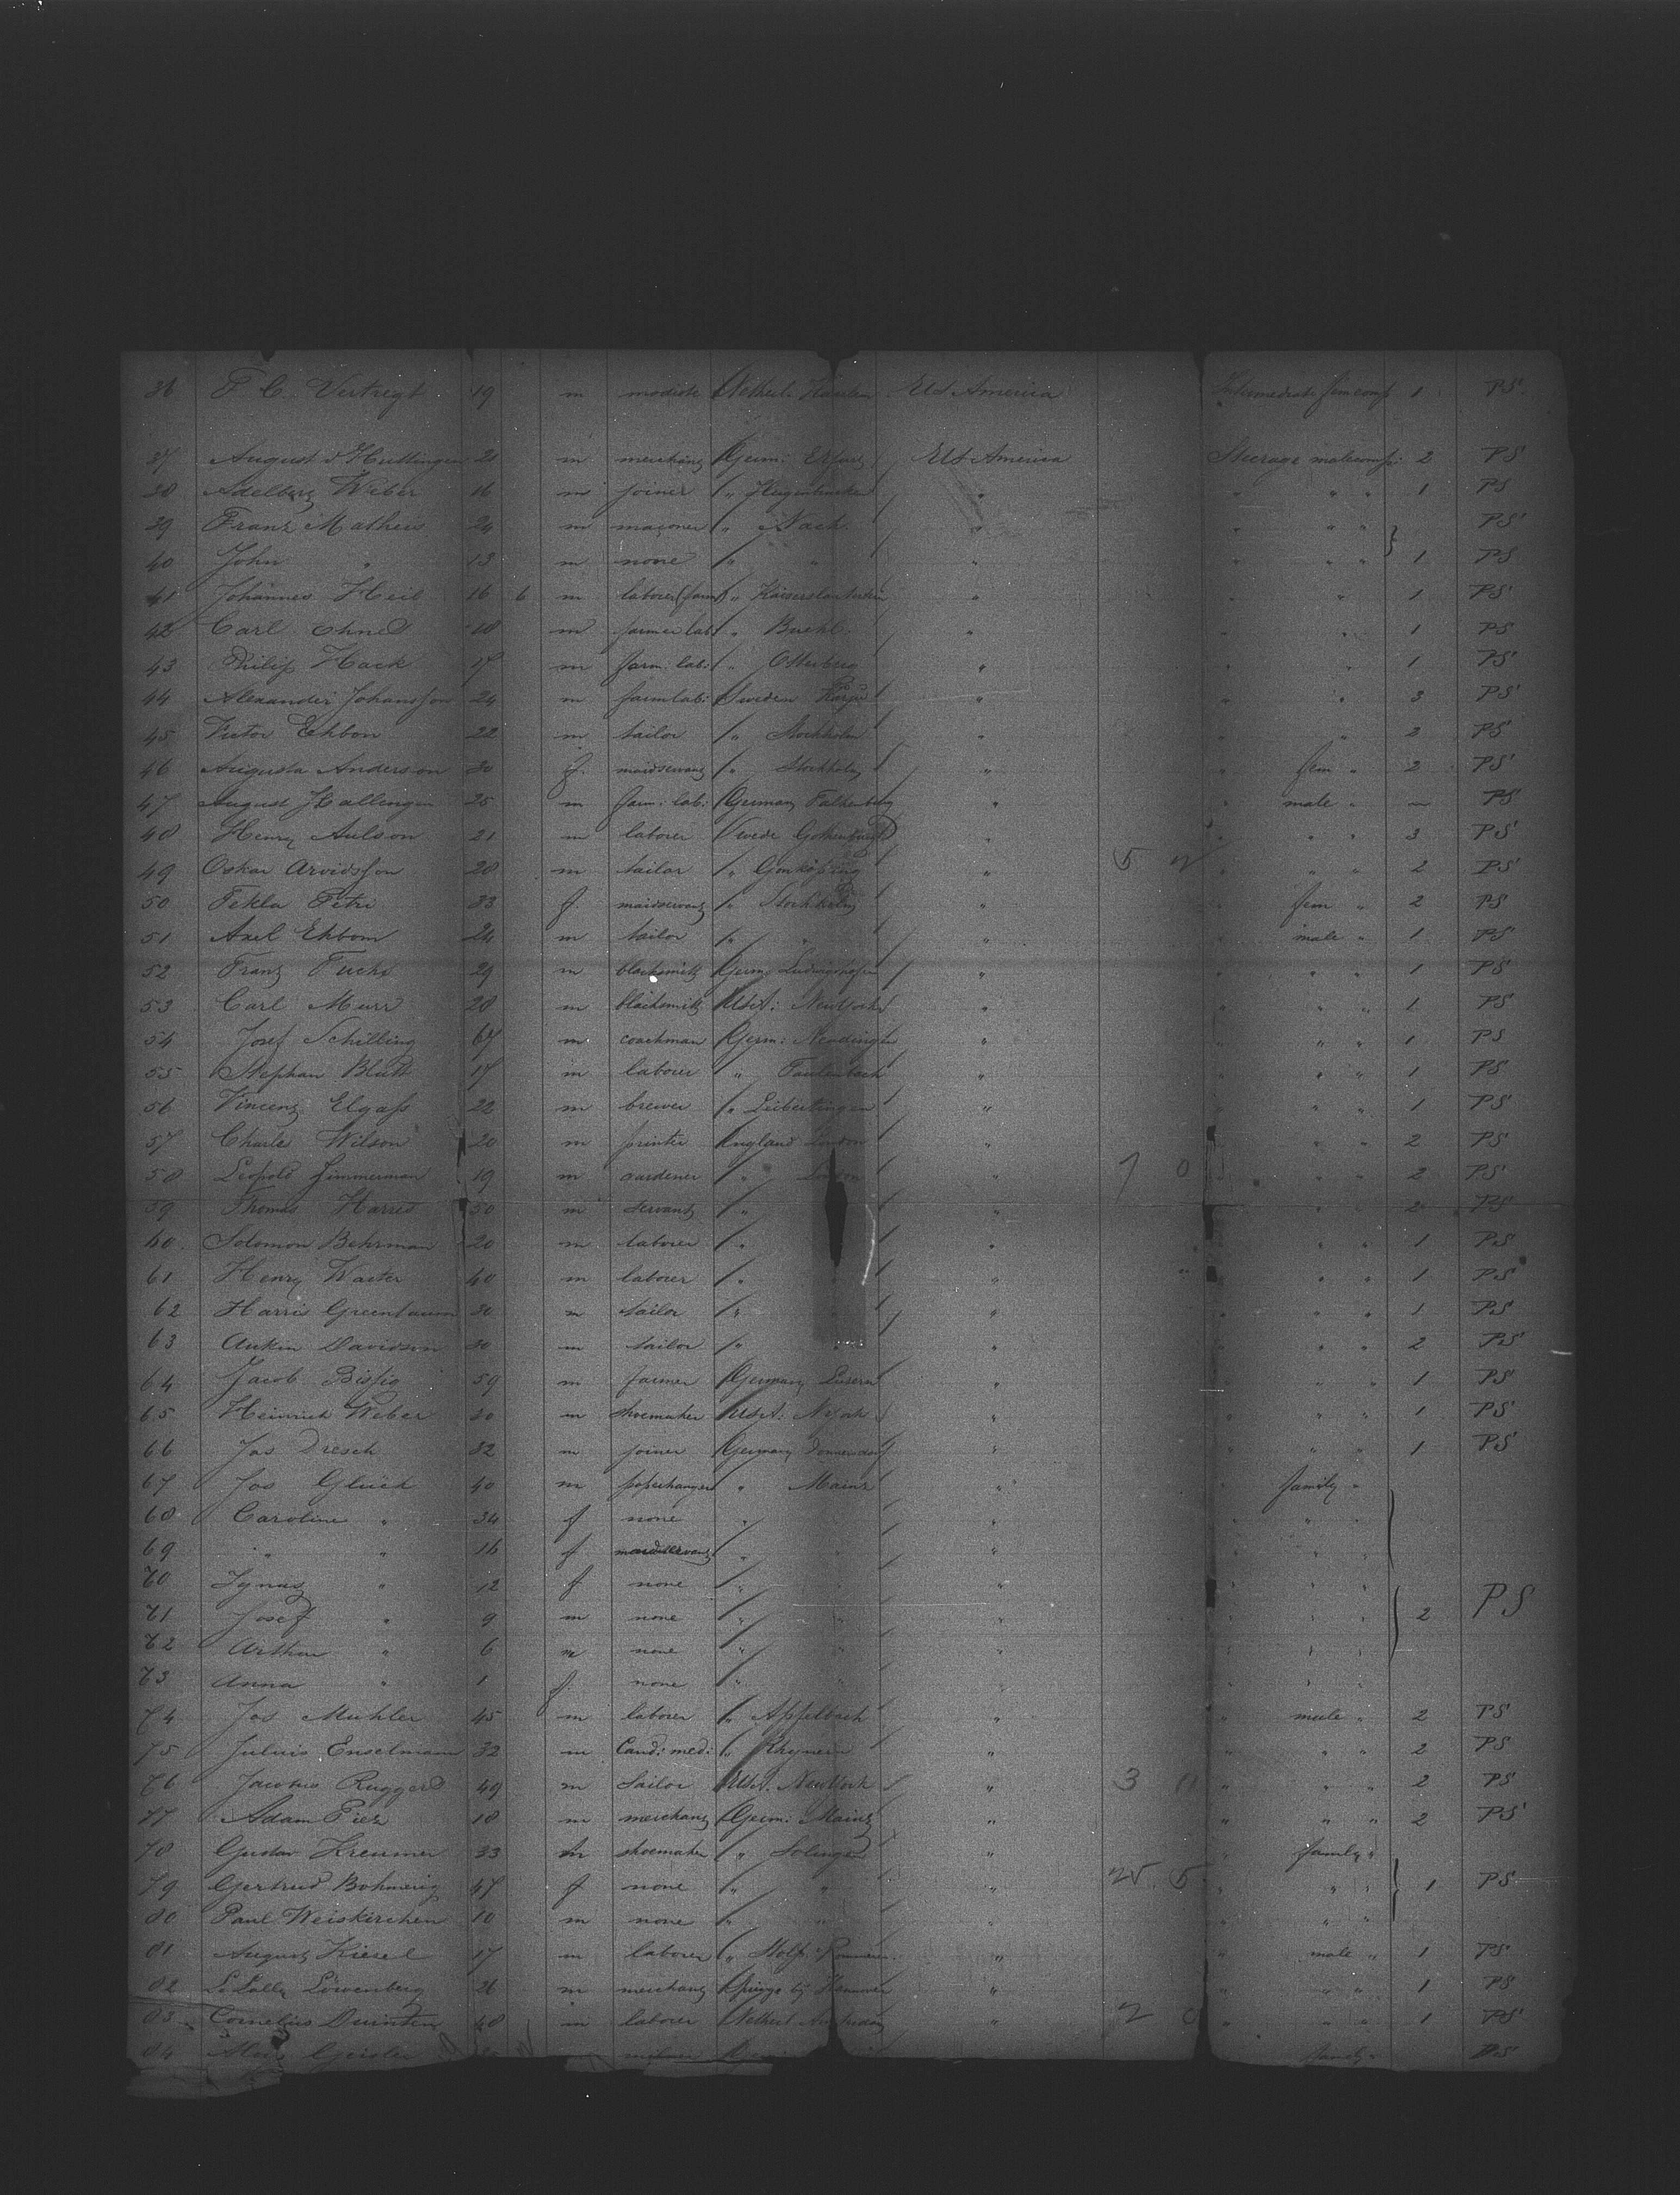 36 F C. Vertregt 19 m modiste Netherl. Haarlem USt America Intermediate fem comp 1 PS
37 August Huttinger 21 m merchant Germ: Erfurt USt America Steerage male comp: 2 PS
38 Adelberg Weber 16 m joiner " " " " 1 PS
39 Franz Matheis 24 m maçoner " Nack " " " " PS
40 John " 13 m none " " " " " " 1 PS
41 Johannes Heil 16 6 m laborer (farm) " Kaiserslautern " " 1 PS
42 Carl Ohned 18 m farmer lab: " Buchl. " " 1 PS
43 Philip Hack 17 m farm. lab: " Otterberg " " 1 PS
44 Alexander Johansson 24 m farm lab: Sweden " " " 3 PS
45 Victor Ekbon 22 m tailor " Stockholm " " 2 PS
46 Augusta Anderson 30 f. maidservant " Stockholm " " fem " 2 PS
47 August Hallengen 25 m farm: lab: Germany Falkenberg " " male " PS
48 Henry Aulson 21 m laborer Swede Gothenburg " " " 3 PS
49 Oskar Arvidsson 28 m tailor " Gonkoping " 5 " " " 2 PS
50 Tekla Petri 33 f. maidservant " Stockholm " " fem " 2 PS
51 Axel Ekbom 24 m tailor " " " " male " 1 PS
52 Franz Fuchs 29 m blacksmith Germ. Ludwigshafen " " " 1 PS
53 Carl Murr 28 m blacksmith USt: New York " " " " 1 PS
54 Josef Schilling 67 m coachman Germ: " " " 1 PS
55 Stephan Blatt 17 m laborer " Faulenbach " " " 1 PS
56 Vincenz Elgass 22 m brewer " Leibertingen " " " " 1 PS
57 Charles Wilson 20 m printer England London " " " 2 PS
58 Leopold Zimmerman 19 m gardener " London " 7 0 " " 2 PS
59 Thomas Harris 50 m servant " " " 2 PS
60 Solomon Behrman 20 m laborer " " " " 1 PS
61 Henry Warter 40 m laborer " " " " 1 PS
62 Harris Greenbaum 30 m tailor " " " " 1 PS
63 Ankin Davidson 30 m tailor " " " " 2 PS
64 Jacob Bissig 59 m farmer Germany Luzern " " " 1 PS
65 Heinrich Weber 30 m shoemaker USt: N York " " " " 1 PS
66 Jos Dresch 32 m joiner Germany Donnersdorf " " " 1 PS
67 Jos Glück 40 m paperhanger " Mainz " " family "
68 Caroline " 34 f none " " " " "
69 " " 16 f maidservant " " " " "
70 Ignaz " 12 f none " " " " "
71 Josef " 9 m none " " " " " 2 PS
72 Arthur " 6 m none " " " " "
73 Anna " 1 f none " " " " "
74 Jos Mühler 45 m laborer " Apfelbach " " male " 2 PS
75 Julius Enselmann 32 m Cand: med: " Rhynern " " " 2 PS
76 Jacobus Ruggerd 49 m Sailor USt. New York " 3 11 " " " 2 PS
77 Adam Pier 18 m merchant Germ: Mainz " " " " 2 PS
78 Gustav Kreumer 33 m shoemaker " Solingen " " family "
79 Gertrud Bohmerig 47 f none " " " 25. 5 " " " 1 PS
80 Paul Weiskirchen 10 m none " " " " "
81 August Kiesel 17 m laborer " Stolp. Pommern " " male " 1 PS
82 Löwenberg 26 m merchant " " 1 PS
83 Cornelius Duinten 48 m laborer Netherl Amsterdam " 2 0 " " " 1 PS
84 Geisler family " PS